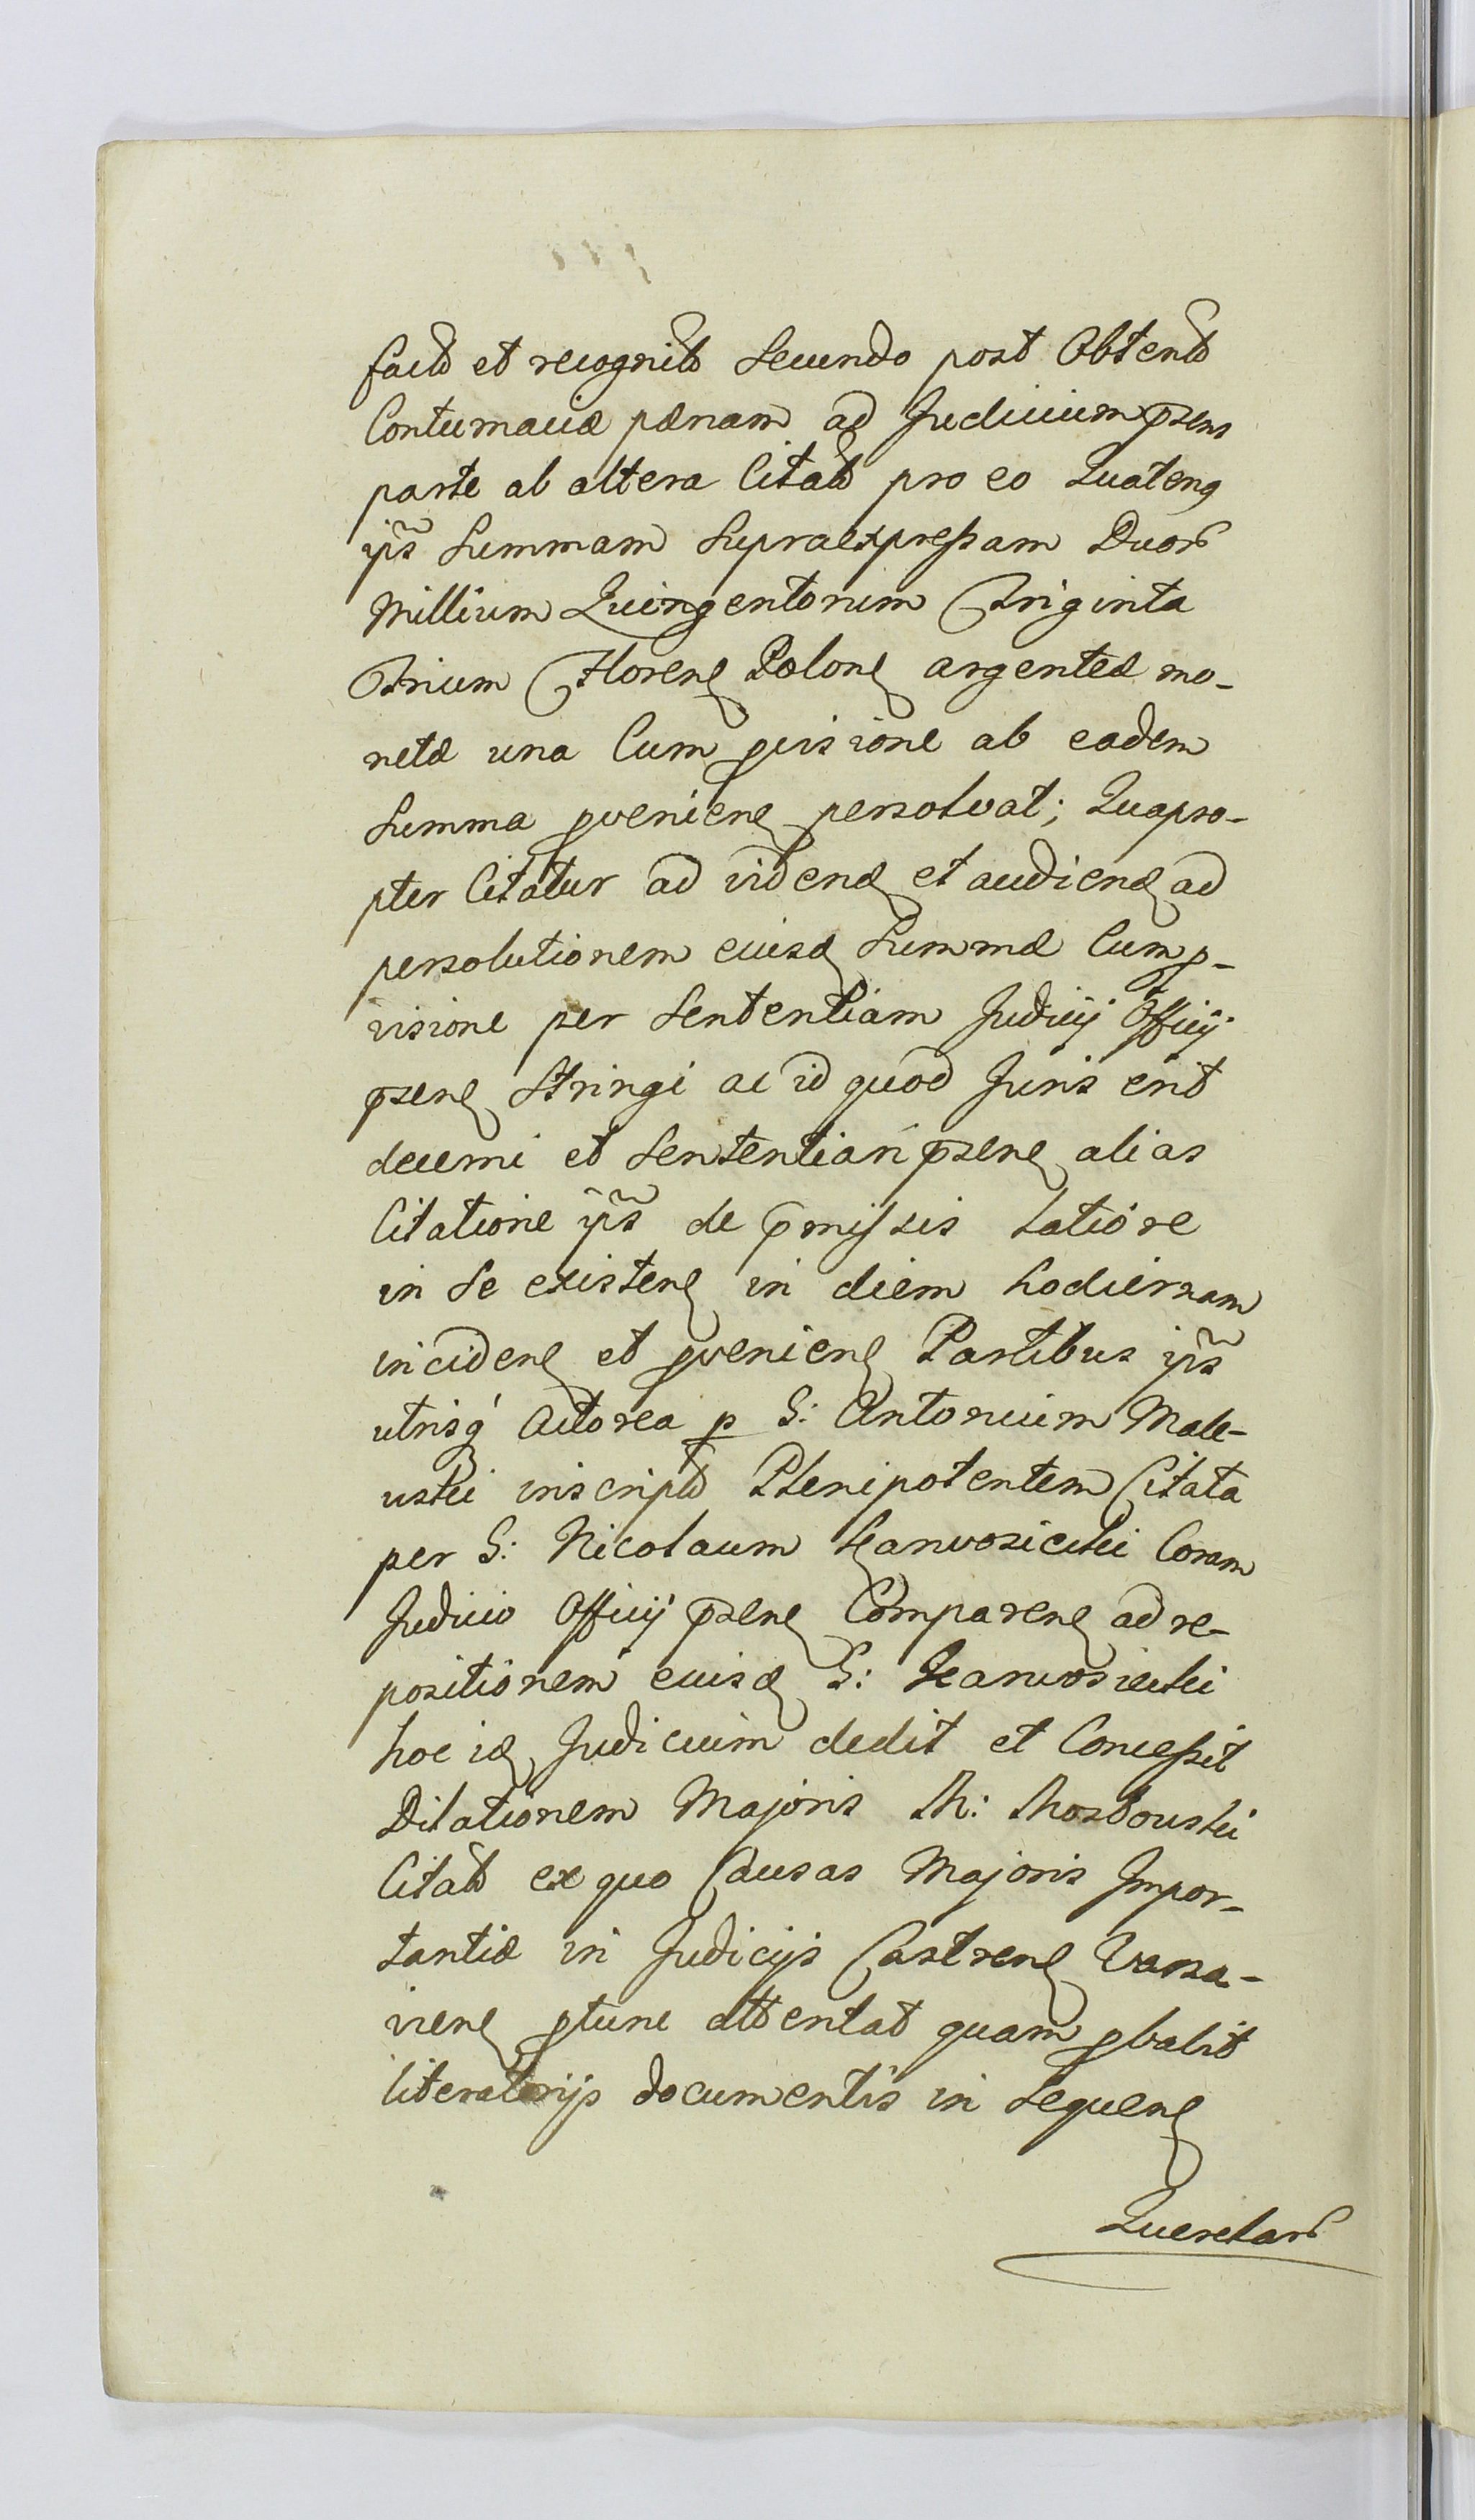 facto et recognito Secundo post Obtento
Contumaciæ pænam ad Judicium p̄sens
parte ab altera Citato pro eo Quateng
ip̃s Summam Supraexpressam Duor
Millium Quingentorum Triginta
Trium Floren Polon argenteæ mo-
netæ una Cum pvisione ab eadem
Summa pvenien persolvat; Quapro-
pter Citatur ad vidend et audiend ad
persolutionem eiusd Summæ Cum p-
visione per Sententiam Judicij Officij
p̄sen Stringi ac id quod Juris erit
decerni et Sententiari p̄sen alias
Citatione ip̃s de p̄missis latiore
in Se existen in diem hodiernam
inciden et pvenien Partibus ip̃s
utrisq Actorea p G: Antonium Male-
wski inscripto Plenipotentem Citata
per G: Nicolaum Karwosiecki Coram
Judicio Officij p̄sen Comparen ad re-
positionem eiusd G: Karwosiecki
hoc id Judicium dedit et Concessit
Dilationem Majoris M: Mostowski
Citato ex quo Causas Majoris Impor-
tantiæ in Judicijs Castren Varsa-
vien ptunc attentat quam pbabit
literatorijs documentis in Sequen
Querelar